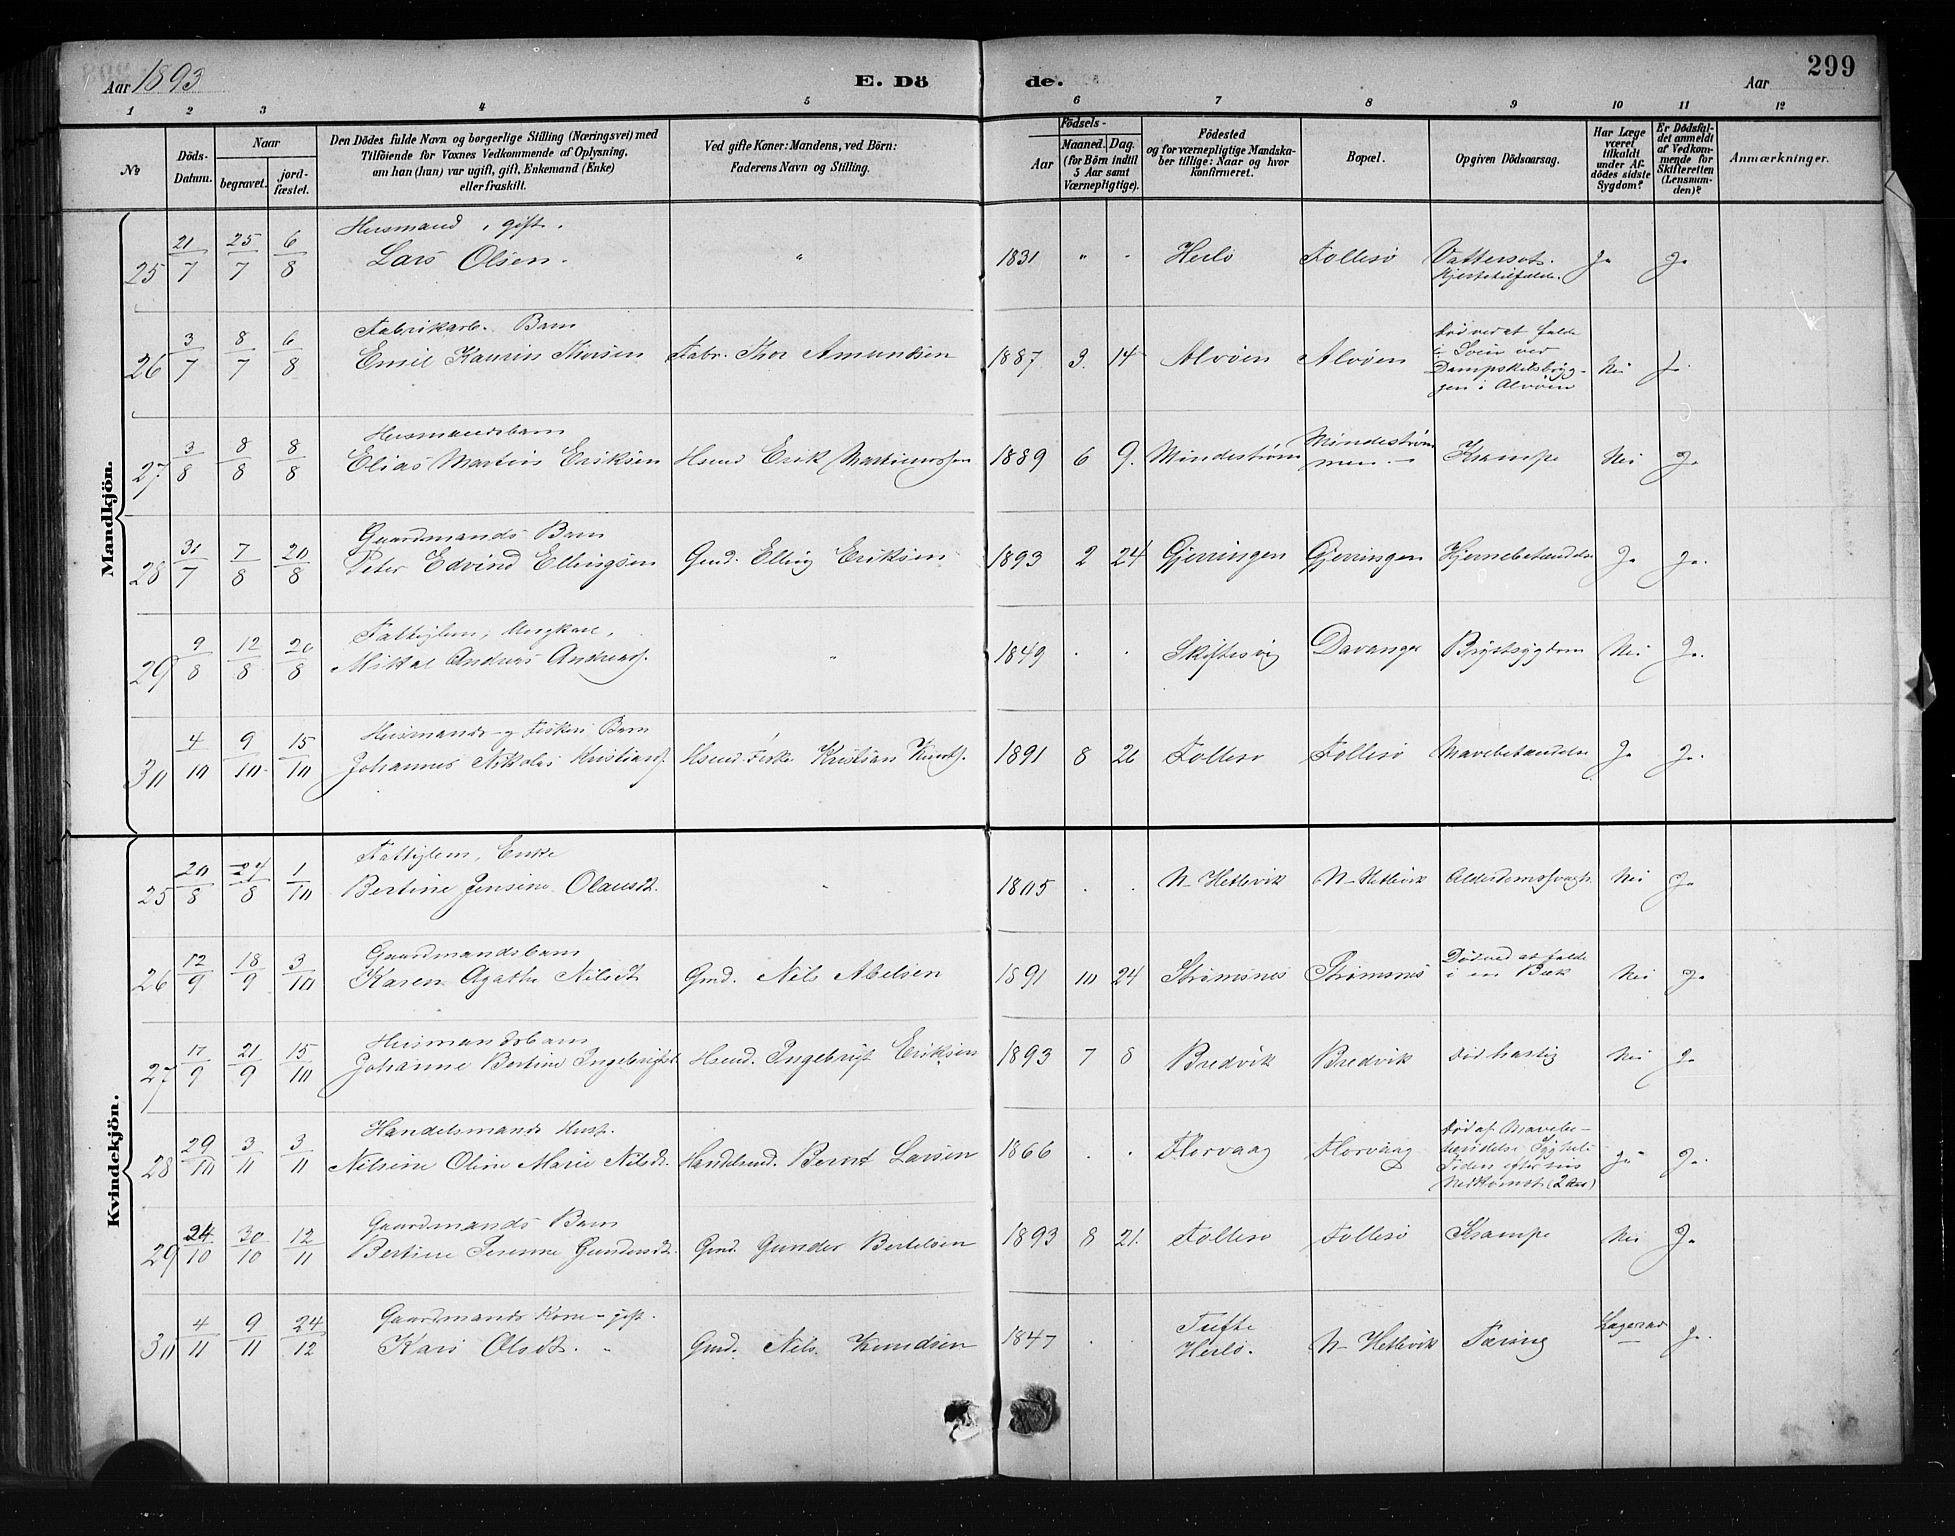 Aar 1893
E. Dö
de.
Aar
299
1 2 3 4 5 6 7 8 9 10 11 12
No
Döds-Datum.
Naar
begravet.
jord-fæstet.
Den Dödes fulde Navn og borgerlige Stilling (Næringsvei) med
Tilföiende for Voxnes Vedkommende af Oplysning,
om han (hun) var ugift, gift, Enkemand (Enke)
eller fraskilt.
Ved gifte Koner: Mandens, ved Börn:
Faderens Navn og Stilling.
Födsels-
Aar
Maaned. Dag.
(for Börn indtil
5 Aar samt
Værnepligtige).
Födested
og for værnepligtige Mandska-
ber tillige: Naar og hvor
konfirmeret.
Bopæl.
Opgiven Dödsaarsag.
Har Læge
været
tilkaldt
under Af-
dödes sidste
Sygdom?
Er Dödsfal-
det anmeldt
af Vedkom-
mende for
Skifteretten
(Lensman-
den)?
Anmærkninger.
Mandkjön.
Husmand, gift.
25 21/7 25/7 6/8 Lars Olsen. " 1831 " - Herlö Follesö Vattersot. Hjertetilfælde. Ja Ja
Fabrikarb. Barn
26 3/7 8/7 6/8 Emil Kaurin Thorsen Fabr. Thor Amundsen 1887 3. 14 Alvöen Alvöen Död ved at falde
i Söen ved
Dampskibsbryg-
gen i Alvöen Nei Ja.
Husmandsbarn
27 3/8 8/8 8/8 Elias Martin Eriksen Hsmd Erik Martinussen 1889 6 9. Mindeström Mindeström
men. Krampe Nei Ja
Gaardmands Barn
28 31/7 7/8 20/8 Peter Edvind Ellingsen Gmd. Elling Eriksen 1893 2 24 Gjerringen Gjerringen Hjernebetændelse Ja Ja.
Fattiglem, Ungkarl,
29 9/8 12/8 20/8 Mikal Andreas Andreass. " 1849 . . Skiftesvig Davanger Brystsygdom Nei Ja.
Husmands- og Fiskers Barn
30 4/10 9/10 15/10 Johannes Nikolai Kristians. Hsmd Fisker Kristian Knuts. 1891 8 26 Follesö Follesö Mavebetændelse Ja Ja.
Kvindekjön.
Fattiglem, Enke
25 20/8 24/8 1/10 Bertine Jensine Olausdt. " 1805 . . N-Hetlevik N-Hetlevik Alderdomssvagh. Nei Ja
Gaardmandsbarn
26 12/9 18/9 3/10 Karen Agathe Nilsdt. Gmd. Nils Abelsen 1891 10 24 Strömsnes Strömsnes Död ved at falde
i en Bæk Nei Ja
Husmandsbarn
27 17/9 21/9 15/10 Johanne Bertine Ingebrigtsdt. Hsmd. Ingebrigt Eriksen 1893 7 8 Bredvik Bredvik Död hastig Nei Ja
Handelsmands Hust.
28 29/10 3/11 3/11 Nilsine Oline Marie Nilsdt. Handelsmd. Berent Larsen 1866 . . Florvaag Florvaag Död af Mavebe-
tændelse
Tiden efter sin
Nedkomst Ja Ja.
Gaardmands Barn
29 24/10 30/10 12/11 Bertine Serine Gundersdt. Gmd. Gunder Bertelsen 1893 8 21. Follesö Follesö Krampe Nei Ja
Gaardmands Kone - gift.
30 4/11 9/11 24/12 Kari Olsdt. " Gmd. Nils Knudsen 1847 . . Tufte
Herlö. N-Hetlevik Tæring Lægeraad Ja.